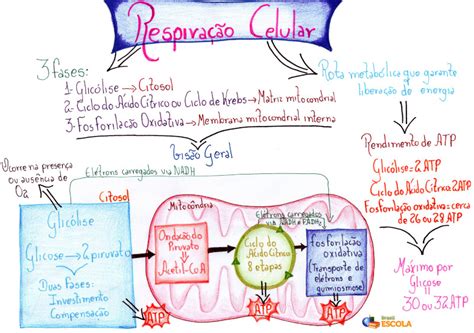 Respiração Celular
3 fases:
1- Glicólise → Citosol
2- Ciclo do Ácido Cítrico ou Ciclo de Krebs → Matriz mitocondrial
3- Fosforilação Oxidativa → Membrana mitocondrial interna
Rota metabólica que garante
liberação de energia
Visão Geral
Ocorre na presença
ou ausência de
O2
Elétrons carregados via NADH
Citosol
Glicólise
Glicose → 2 piruvato
Duas Fases:
Investimento
Compensação
ATP
Mitocôndria
Oxidação do
Piruvato
a
Acetil-CoA
Elétrons carregados
via NADH e FADH2
Ciclo do
Ácido Cítrico
8 etapas
ATP
Fosforilação
oxidativa
(Transporte de
elétrons e
quimiosmose)
ATP
Rendimento de ATP
Glicólise = 2 ATP
Ciclo do Ácido Cítrico = 2 ATP
Fosforilação oxidativa = cerca
de 26 ou 28 ATP
Máximo por
Glicose
=
30 ou 32 ATP
Brasil
ESCOLA